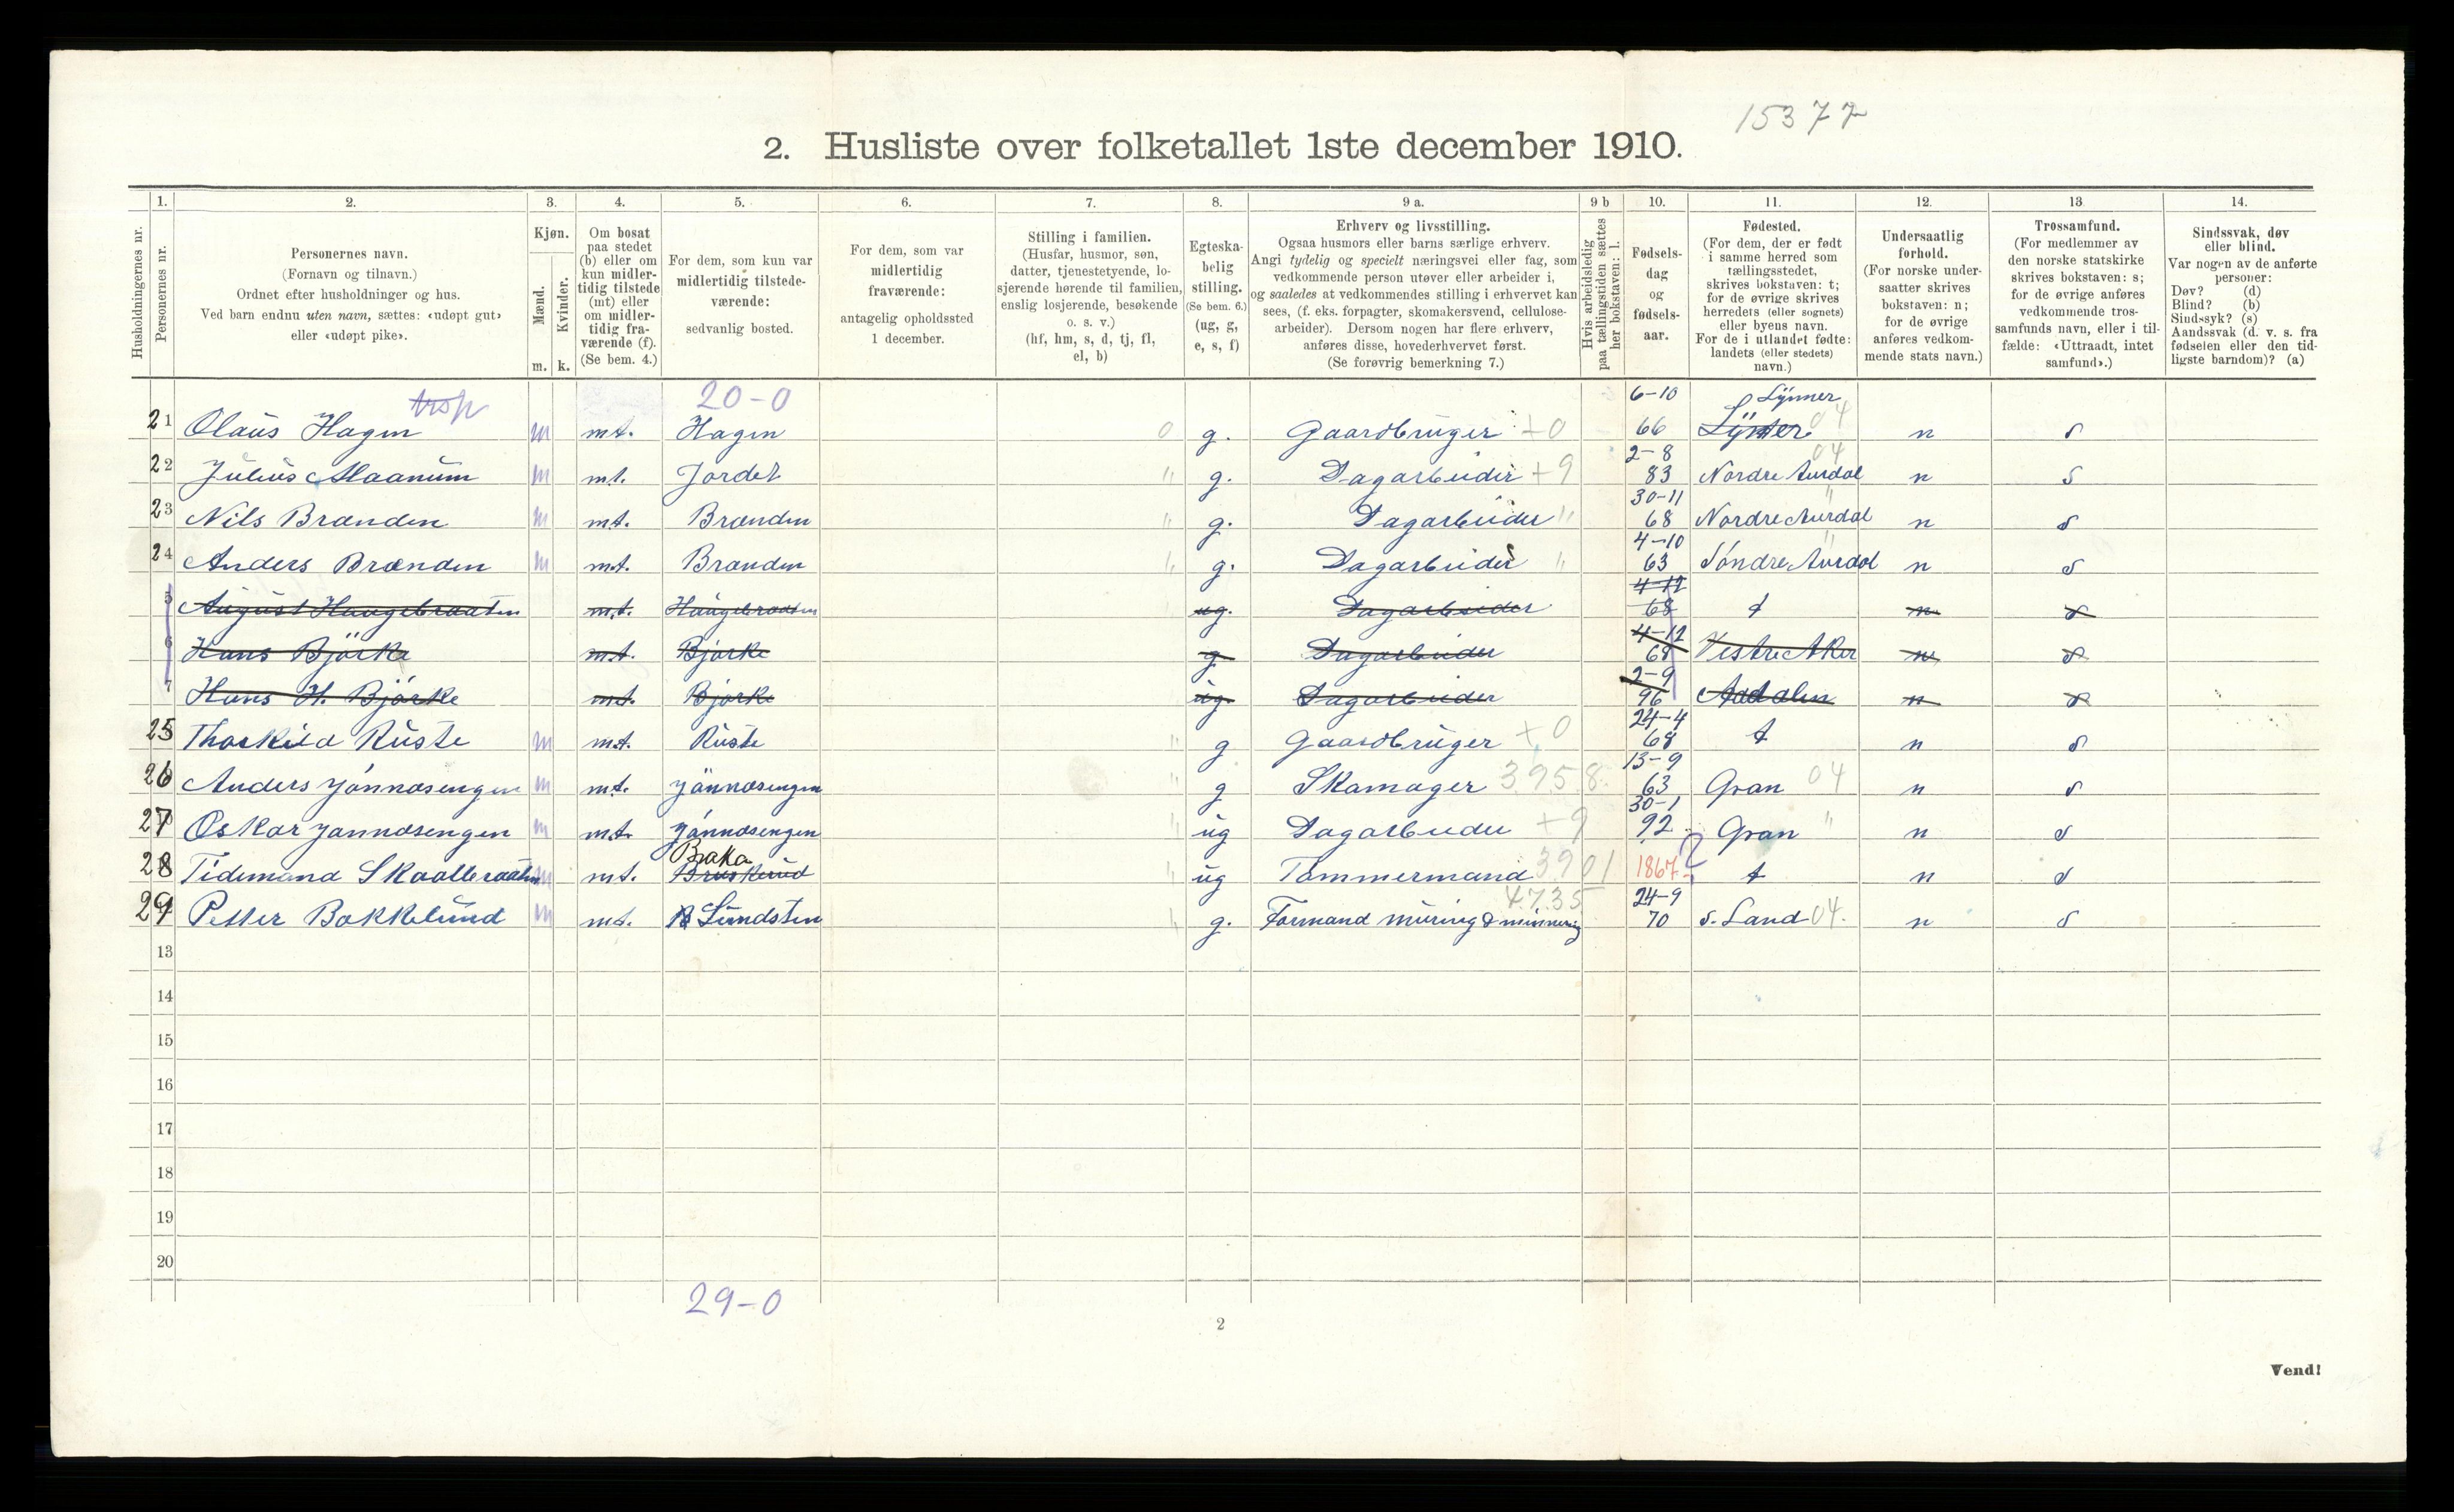 15377
2. Husliste over folketallet 1ste december 1910.
Husholdningernes nr.
1.
Personernes nr.
2.
Personernes navn.
(Fornavn og tilnavn.)
Ordnet efter husholdninger og hus.
Ved barn endnu uten navn, sættes: «udøpt gut»
eller «udøpt pike».
3.
Kjøn.
Mænd.
Kvinder.
m. k.
4.
Om bosat
paa stedet
(b) eller om
kun midler-
tidig tilstede
(mt) eller
om midler-
tidig fra-
værende (f).
(Se bem. 4.)
5.
For dem, som kun var
midlertidig tilstede-
værende:
sedvanlig bosted.
6.
For dem, som var
midlertidig
fraværende:
antagelig opholdssted
1 december.
7.
Stilling i familien.
(Husfar, husmor, søn,
datter, tjenestetyende, lo-
sjerende hørende til familien,
enslig losjerende, besøkende
o. s. v.)
(hf, hm, s, d, tj, fl,
el, b)
8.
Egteska-
belig
stilling.
(Se bem. 6.)
(ug, g,
e, s, f)
9 a.
Erhverv og livsstilling.
Ogsaa husmors eller barns særlige erhverv.
Angi tydelig og specielt næringsvei eller fag, som
vedkommende person utøver eller arbeider i,
og saaledes at vedkommendes stilling i erhvervet kan
sees, (f. eks. forpagter, skomakersvend, cellulose-
arbeider). Dersom nogen har flere erhverv,
anføres disse, hovederhvervet først.
(Se forøvrig bemerkning 7.)
9 b
Hvis arbeidsledig
paa tællingstiden sættes
her bokstaven: l.
10.
Fødsels-
dag
og
fødsels-
aar.
11.
Fødested.
(For dem, der er født
i samme herred som
tællingsstedet,
skrives bokstaven: t;
for de øvrige skrives
herredets (eller sognets)
eller byens navn.
For de i utlandet fødte:
landets (eller stedets)
navn.)
12.
Undersaatlig
forhold.
(For norske under-
saatter skrives
bokstaven: n;
for de øvrige
anføres vedkom-
mende stats navn.)
13
Trossamfund.
(For medlemmer av
den norske statskirke
skrives bokstaven: s;
for de øvrige anføres
vedkommende tros-
samfunds navn, eller i til-
fælde: «Uttraadt, intet
samfund».)
14.
Sindssvak, døv
eller blind.
Var nogen av de anførte
personer:
Døv? (d)
Blind? (b)
Sindssyk? (s)
Aandssvak (d. v. s. fra
fødselen eller den tid-
ligste barndom)? (a)
20-0 6-10 Lynner
21 Olaus Hagen m mt. Hagen 0 g. Gaardbruger +0 66 Lynter 04 n s
2-8 04
22 Julius Maanum m mt. Jordet " g. Dagarbeider +9 83 Nordre Aurdal n s
30-11 "
23 Nils Brænden m mt. Brænden " g. Dagarbeider " 68 Nordre Aurdal n s
4-10 "
24 Anders Brænden m mt. Brænden " g. Dagarbeider " 63 Søndre Aurdal n s
4-12
5 August Haugebraaten mt. Haugebraaten ug. Dagarbeider 68 t n s
4-12
6 Hans Björke mt. Bjørke g Dagarbeider 68 Vestre Aker n s
2-9
7 Hans H. Bjørke mt. Bjørke ug. Dagarbeider 96 Aadalen n s
24-4
25 Thorkild Ruste m mt. Ruste " g Gaardbruger +0 68 t n s
13-9
26 Anders Jønnasengen m mt. Jønnasengen " g Skamager 3958 63 Gran 04 n s
30-1
27 Oskar Jønnasengen m mt. Jønnasengen " ug Dagarbeider +9 92 Gran " n s
Braka
28 Tidemand Skaalleraaten m mt. Bruskerud " ug Tømmermand 3901 1867 ? t n s
4735 24-9
29 Petter Bakkelund m mt. Lundsten " g. Formand muring & minnering 70 s. Land 04. n s
13
14
15
16
17
18
19
20
29-0
2
Vend!